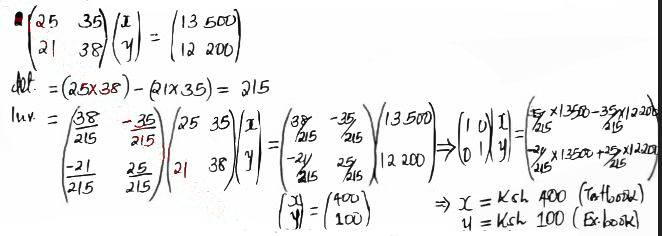 (25 35
21 38)(x
y) = (13 500
12 200)
det. = (25×38) − (21×35) = 215
Inv. = (38/215 −35/215
−21/215 25/215)(25 35
21 38)(x
y) = (38/215 −35/215
−21/215 25/215)(13 500
12 200) ⇒ (1 0
0 1)(x
y) = (38/215 ×13500 − 35/215 ×12200
−21/215 ×13500 + 25/215 ×12200)
(x
y) = (400
100)
⇒ x = Ksh 400 (Textbook)
y = Ksh 100 (Ex. book)